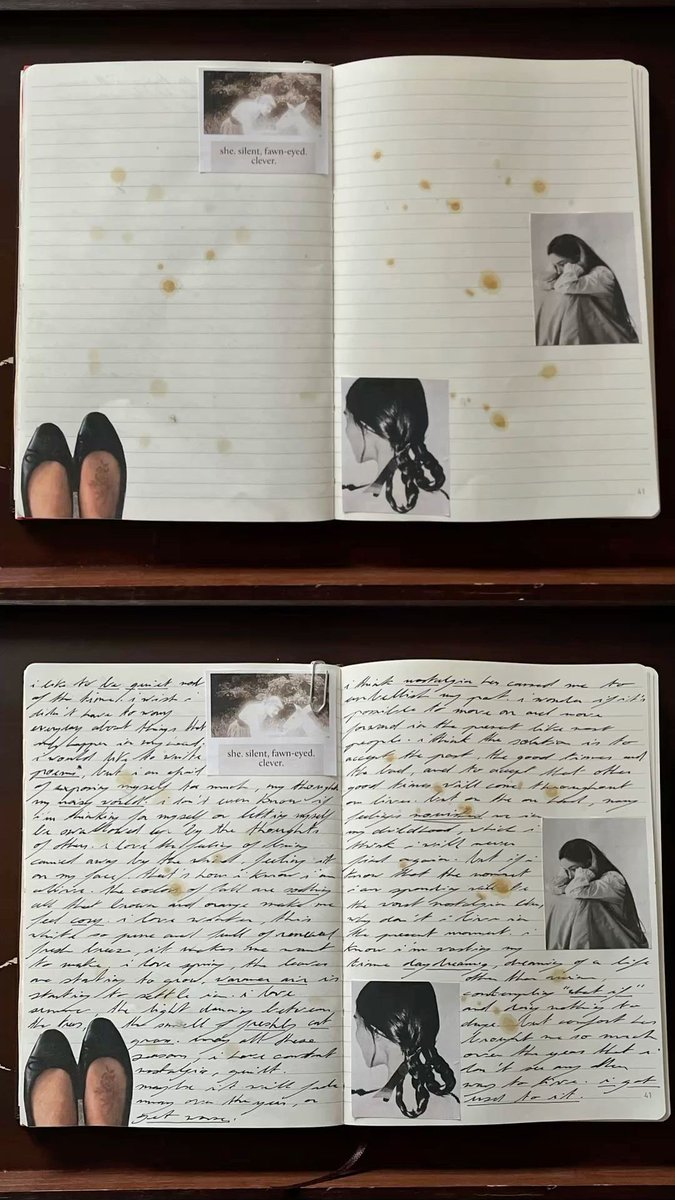 she. silent, fawn-eyed.
clever.
41
i like to be quiet most
of the time. i wish i
didn't have to worry
everyday about things that
may happen in my head,
i would like to write
poems. but i am afraid
of exposing myself too much, my thoughts
my noisy world. i don't even know if
i'm thinking for myself or letting myself
be swallowed up by the thoughts
of others. i love the feeling of being
carried away by the wind, feeling it
on my face, that's how i know i am
alive. the colors of fall are
all that brown and orange make me
feel cosy. i love winter this
white so pure and full of renewal
fresh breez, it makes me want
to make. i love spring, the leaves
are starting to grow, warmer air is
starting to settle in. i love
summer the light dancing between
the trees. the smell of freshly cut
grass. all these
seasons, i have constant
nostalgia, guilt.
maybe it will fade
away over the years, or
get worse.
she. silent, fawn-eyed.
clever.
i think nostalgia has caused me to
embellish my past. i wonder if it's
possible to move on and move
forward in the present like most
people. i think the solution is to
accept the past, the good times and
the bad, and to accept that other
good times will come throughout
our lives. but on the on
feelings nourished me in
my childhood, which i
think i will never
find again. but if i
know that the moment
i am spending will be
the worst nostalgia
why don't i live in
the present moment. i
know i'm wasting my
time daydreaming, dreaming of a life
other than mine,
contemplating "what if"
and doing nothing to
change. but comfort has
brought me so much
over the years that i
don't see any other
way to live. i got
used to it.
41